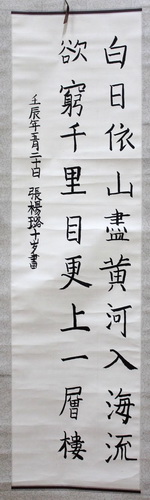 白日依山盡黃河入海流
欲窮千里目更上一層樓
壬辰年五月二十日 張楊璐十岁書